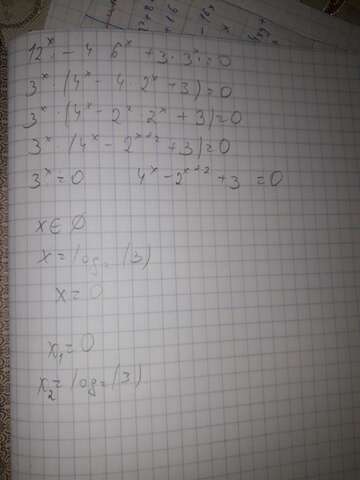 12ˣ - 4 6ˣ + 3·3ˣ = 0
3ˣ·(4ˣ - 4·2ˣ - 3) = 0
3ˣ·(4ˣ - 2²·2ˣ + 3) = 0
3ˣ·(4ˣ - 2ˣ⁺² + 3) = 0
3ˣ = 0 4ˣ - 2ˣ⁺² + 3 = 0
x ∈ ∅
x = log₂(3)
x = 0
x₁ = 0
x₂ = log₂(3)